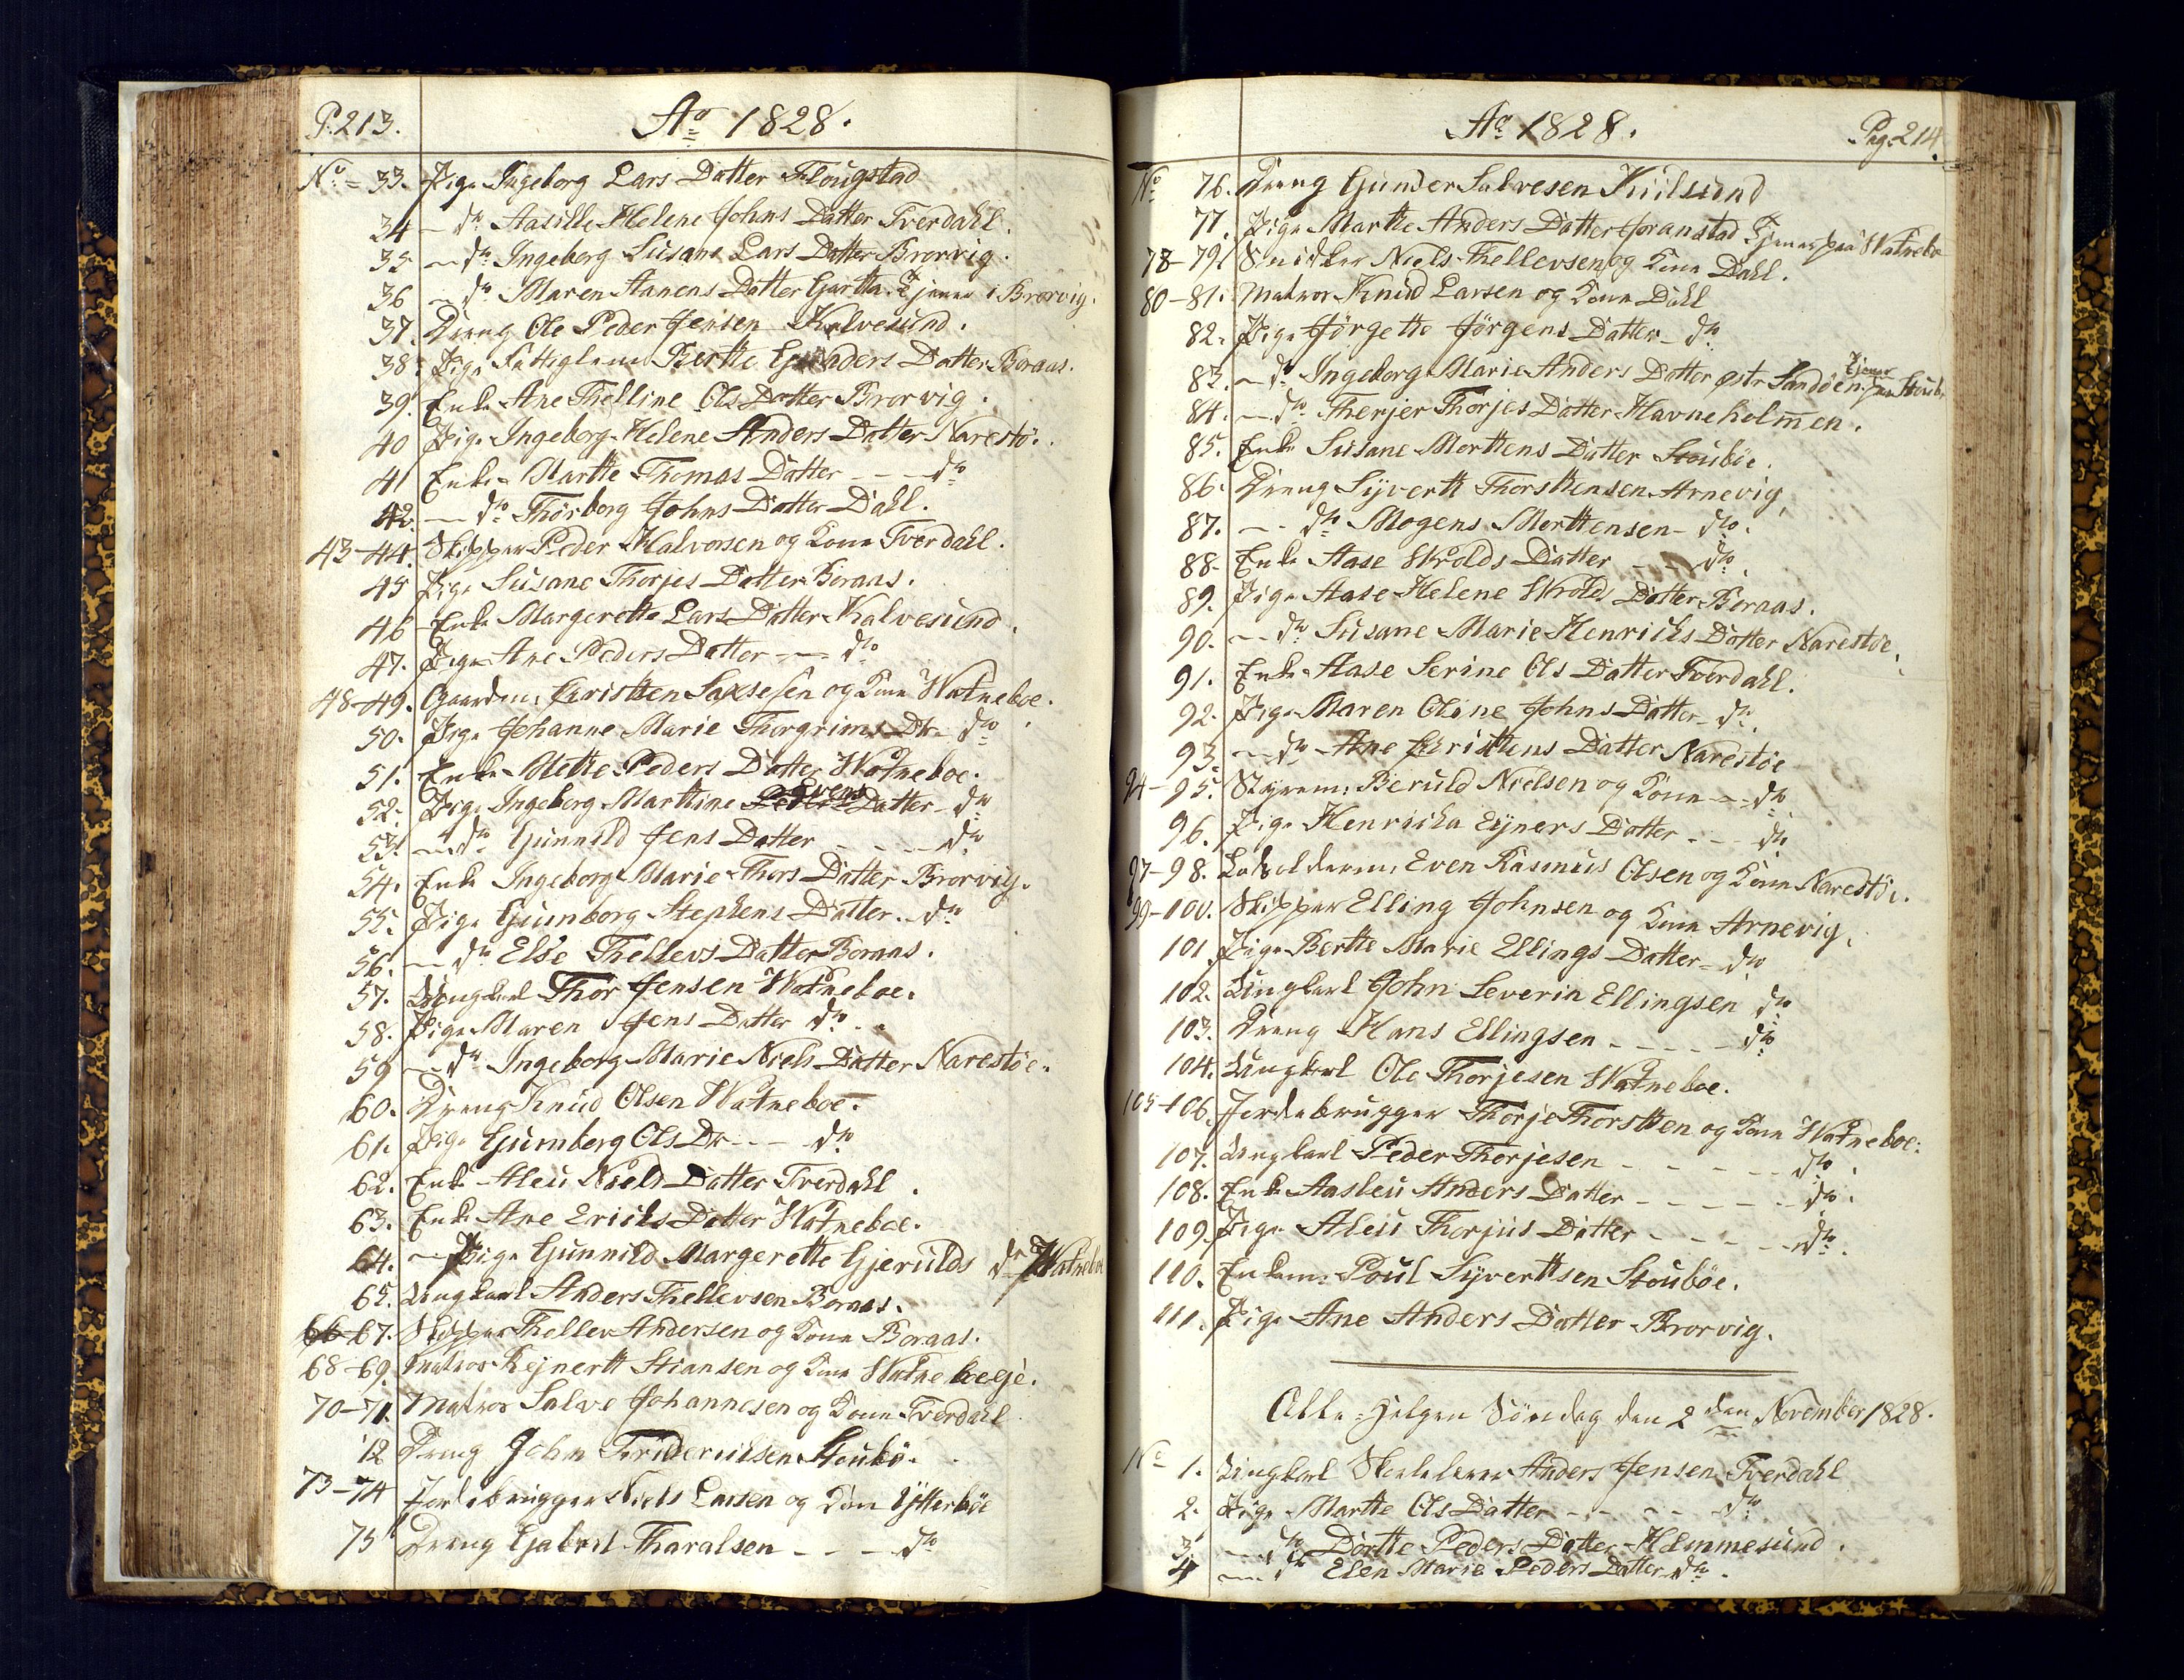 P. 213.
Aº 1828.
Nº = 33. Pige Ingeborg Lars Datter Flougstad
34 — dº Aasille Helene Johns Datter Tverdahl.
35 — dº Ingeborg Susane Lars Datter Brorvig.
36 — dº Maren Aanens Datter Gjertha. Tjener i Brorvig.
37. Dreng Ole Peder Jensen Kalvesund.
38. Pige Fattiglem Berthe Gunders Datter Boraas.
39. Enke Ane Thelline Ols Datter Brorvig.
40 Pige Ingeborg Helene Anders Datter Narestö.
41 Enke Marthe Thomas Datter — — dº
42. — dº Thorborg Johns Datter Dahl.
43-44. Skipper Peder Halvorsen og Kone Tverdahl.
45 Pige Susane Thorjes Datter Boraas.
46 Enke Margerethe Lars Datter Kalvesund.
47. Pige Ane Peders Datter — dº
48-49. Gaardm: Christen Saxesen og Kone Watneboe.
50. Pige Johanne Marie Thorgrims Dtr dº
51. Enke Mette Peders Datter Watneboe.
52. Pige Ingeborg Marthine Evens Datter dº
53. — dº Gunnild Jens Datter - - - dº
54. Enke Ingeborg Marie Thors Datter Brorvig.
55. Pige Gunborg Stephens Datter. dº
56. — dº Else Thellevs Datter Boraas.
57. Ungkarl Thor Jensen Watneboe.
58. Pige Maren Jens Datter dº.
59 — dº Ingeborg Marie Niels Datter Narestöe.
60. Dreng Knud Olsen Watneboe.
61. Pige Gumberg Ols Dr - - - dº
62. Enke Aleu Niels Datter Tverdahl.
63. Enke Ane Ericks Datter Watneboe.
64. — Pige Gunnild Margerette Gjerulds dr Watneboe
65. Ungkarl Anders Thellevsen Boraas.
66-67. Skipper Thellev Andersen og Kone Boraas.
68-69. Matros Rejnertt Stiansen og Kone Watneboeeje.
70-71. Matros Salve Johannesen og Kone Tverdahl
72 Dreng John Friderichsen Stoubö.
73-74 Jordebrugger Niels Larsen og Kone Ytterböe
75 Dreng Gabriel Tharalsen - - - dº
Aº 1828.
Pag: 214.
Nº 76. Dreng Gunder Salvesen Kiilsund
77. Pige Marthe Anders Datter Joranstad Tjener paa Watneboe
78-79. Snidker Niels Thellevsen og Kone Dahl.
80-81. Matros Knud Larsen og Kone Dahl
82. Pige Jörgette Jörgens Datter - dº
83. — dº Ingeborg Marie Anders Datter østr Sandöen. Tjener paa Stoubö
84. — dº Therjer Thorjes Datter Havneholmen.
85. Enke Susane Morttens Datter Stouböe.
86. Dreng Syvertt Thorsttensen Arnevig
87. — dº Mogens Morttensen - dº.
88. Enke Aase Wrolds Datter - - dº.
89. Pige Aase Helene Wrolds Datter Boraas.
90. — dº Susane Marie Henricks Datter Narestöe.
91. Enke Aase Serine Ols Datter Tverdahl.
92. Pige Maren Oline Johns Datter - dº
93. — dº Ane Christtens Datter Narestöe
94-95. Styrm: Beruld Nielsen og Kone - - dº
96. Pige Henricka Ejners Datter - - dº
97-98. Lodsoldrm: Even Rasmus Olsen og Kone Narestöe.
99-100. Skipper Elling Johnsen og Kone Arnevig.
101. Pige Berthe Marie Ellings Datter - dº
102. Ungkarl John Severin Ellingsen dº
103. Dreng Hans Ellingsen - - - - dº
104. Ungkarl Ole Thorjesen Watneboe.
105-106. Jordebrugger Thorje Thorstten og Kone Watneboe.
107. Ungkarl Peder Thorjesen - - - - - dº.
108. Enke Aasleu Anders Datter - - - - - dº.
109. Pige Aleu Thorjus Datter - - - - dº.
110. Enkem: Poul Syverttsen Stouböe.
111. Pige Ane Anders Datter Brorvig.
Alle-Helgen Söndag den 2den November 1828.
Nº 1. Ungkarl Skoleholder Anders Jensen Tverdahl
2. Pige Marthe Ols Datter - - - - dº
3. — dº Dortte Peders Datter Hammesund.
4 — dº Elen Marie Peders Datter dº.